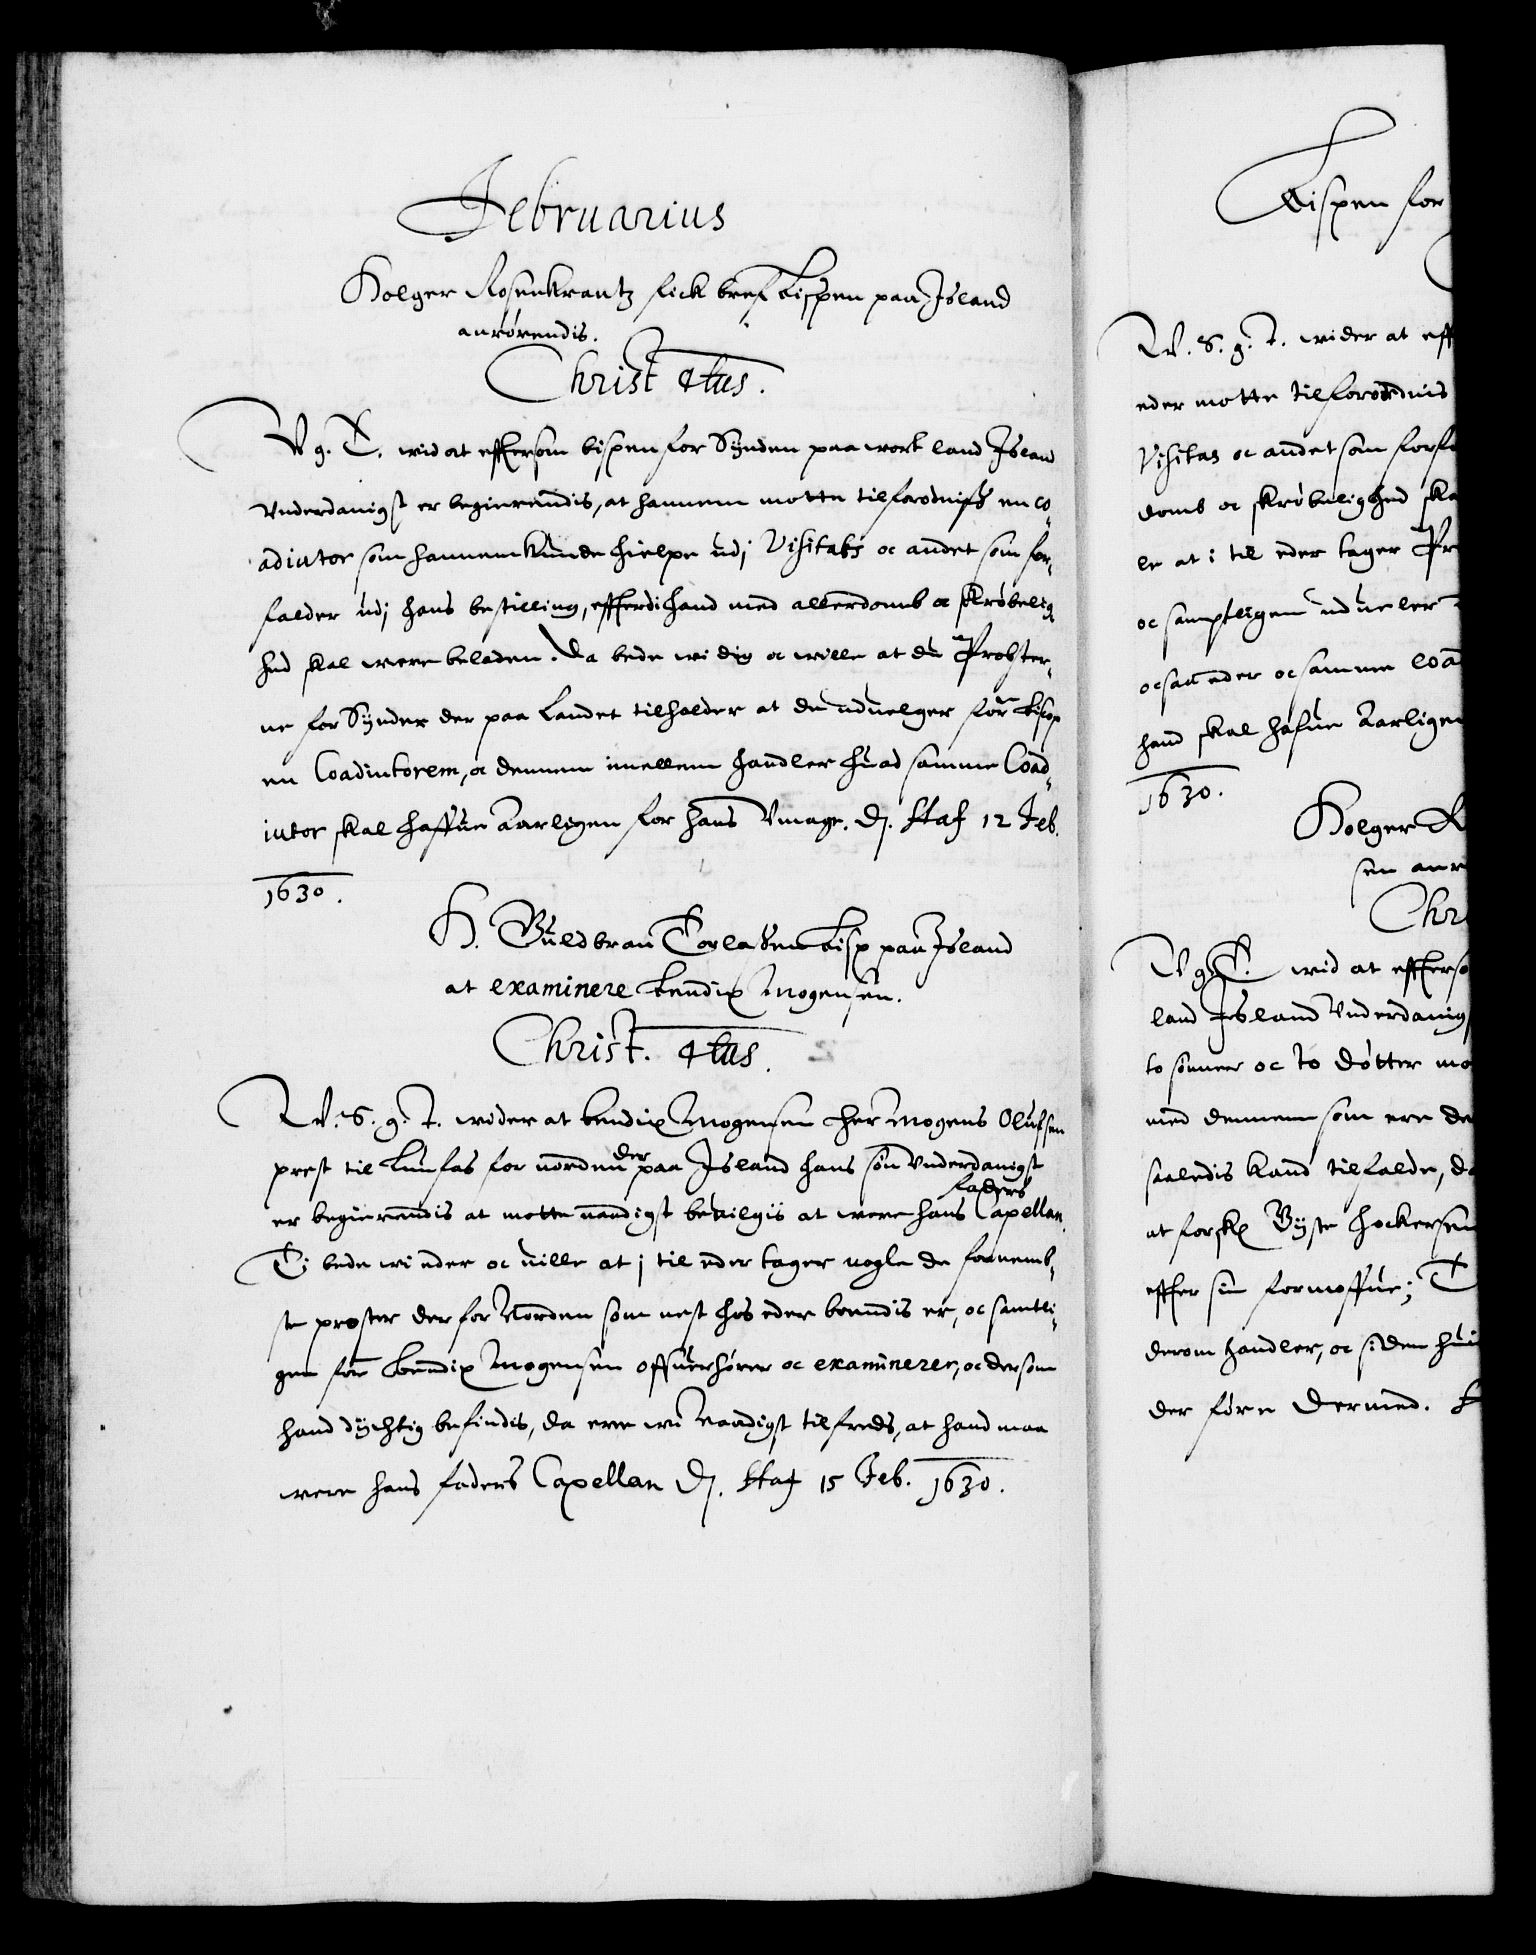 Februarius
Holger Rosenkrantz fick bref Bispen paa Island
anrørendis.
Christ 4tus.
V g. T. wid at effersom bispen for Synden paa wort land Island
Vnderdanigst er begierendis, at hannem motte tilforodnis en co¬
adiutor som hannem kunde hielpe udj Visitats oc andet som for¬
falder udj hans bestilling, efferdi hand med allerdomb oc skrøbelig
hed skal were beladen. Da bede wi dig oc wille at du Probster¬
ne for Synder der paa Landet tilholder at de uduelger for bisop
en Coadiutorem, oc dennem imellem handler huad samme Coad¬
iutor skal haffue Aarligen for hans Vmage. Dj. Haf 12 Feb.
1630.
H. Guldbran Torlaksen Bisp paa Island
at examinere bendix Mogensen.
Christ. 4tus.
W. S. g. T. wider at bendix Mogensen her Mogens Olufsen
prest til Lunfas for norden der paa Island hans søn Vnderdanigst
er begierendis at motte naadigst beuilgis at were hans faders Capellan.
Ti bede wi eder oc uille at j til eder tager nogle de fornemb¬
ste prester der for Norden som nest hos eder boendis er, oc samtli¬
gen for bendix Mogensen offuerhører oc examinerer, oc dersom
hand dychtig befindis, da ere wi Naadigst tilfreds, at hand maa
were hans faders Capellan Dj. Haf 15 Feb. 1630.
Bispen for
W. S. g. T. wider at eff
eder motte tilforordnis
Visitas oc andet som forfa
domb oc skrøbelighed ska
le at i til eder tager Pr
oc samptligen udueler
ocsaa eder oc samme coa
hand skal hafue Aarligen
1630.
Holger R
sen anr
Chri
V g T. wid at efferso
land Island Vnderdanig
to sønner oc to døtter mo
med dennem som ere de
saaledis kand tilfalde, da
at forske Gyste Hockersen
effer sin formoffue; T
derom handler, oc siden hui
der føre dermed.